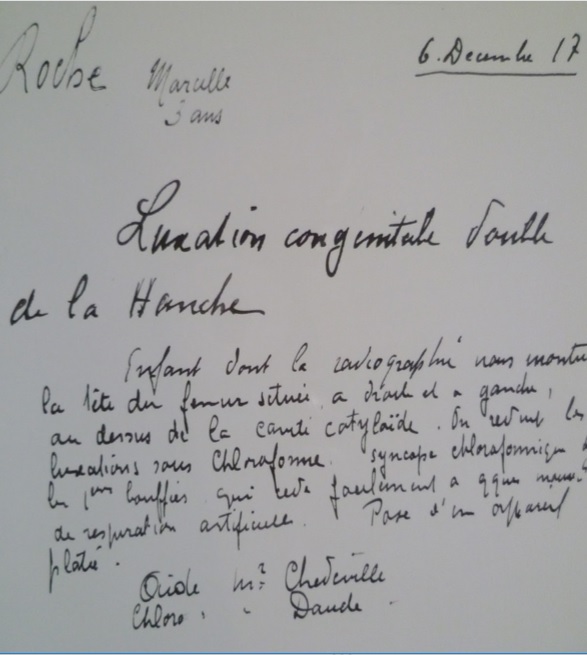 Roche Marcelle 6. Decembre 17
3 ans
Luxation congenitale double
de la Hanche
Enfant dont la radiographie nous montre
la tête du femur située, a droite et a gauche,
au dessus de la cavité cotyloïde. On reduit les
luxations sous Chloroforme. syncope chloroformique
les 1eres bouffées qui cede facilement a qques mouv.
de respiration artificielle. Pose d'un appareil
platré.
Aide Mr Chedeville
Chloro " Daude